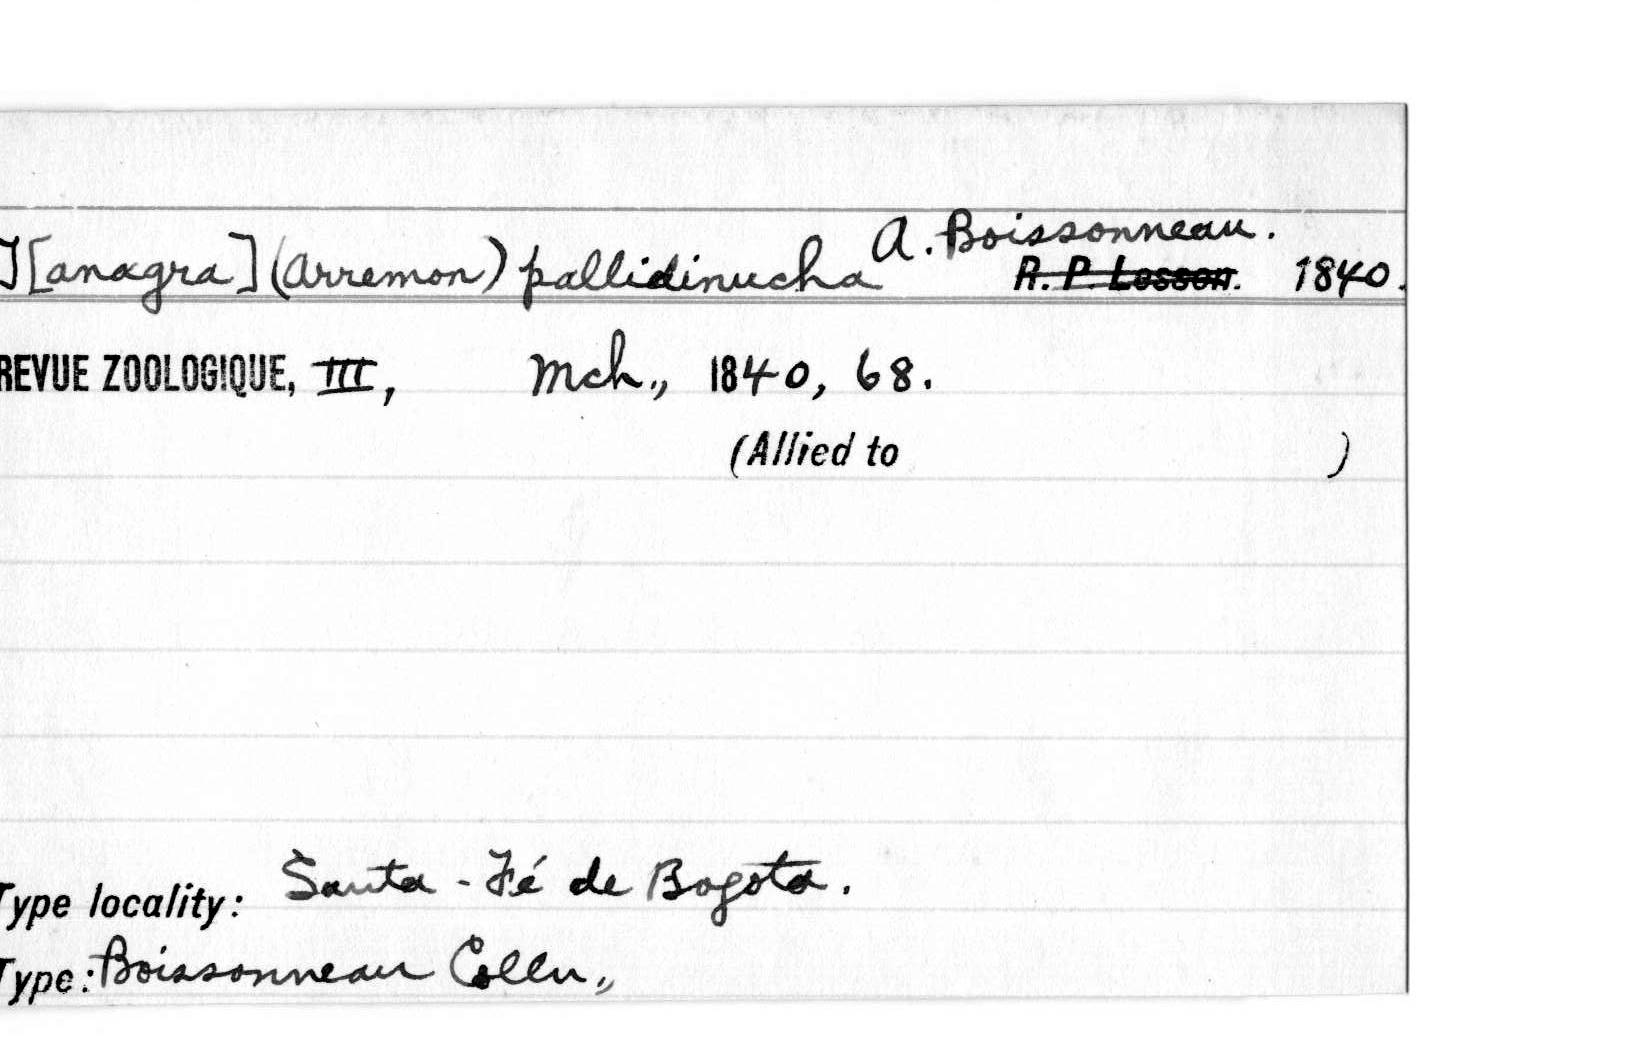 T[anagra] (Arremon) pallidinucha A. Boissonneau.
R. P. Lesson. 1840.
REVUE ZOOLOGIQUE, III, Mch., 1840, 68.
(Allied to )
Type locality: Santa-Fé de Bogota.
Type: Boissonneau Colln.,